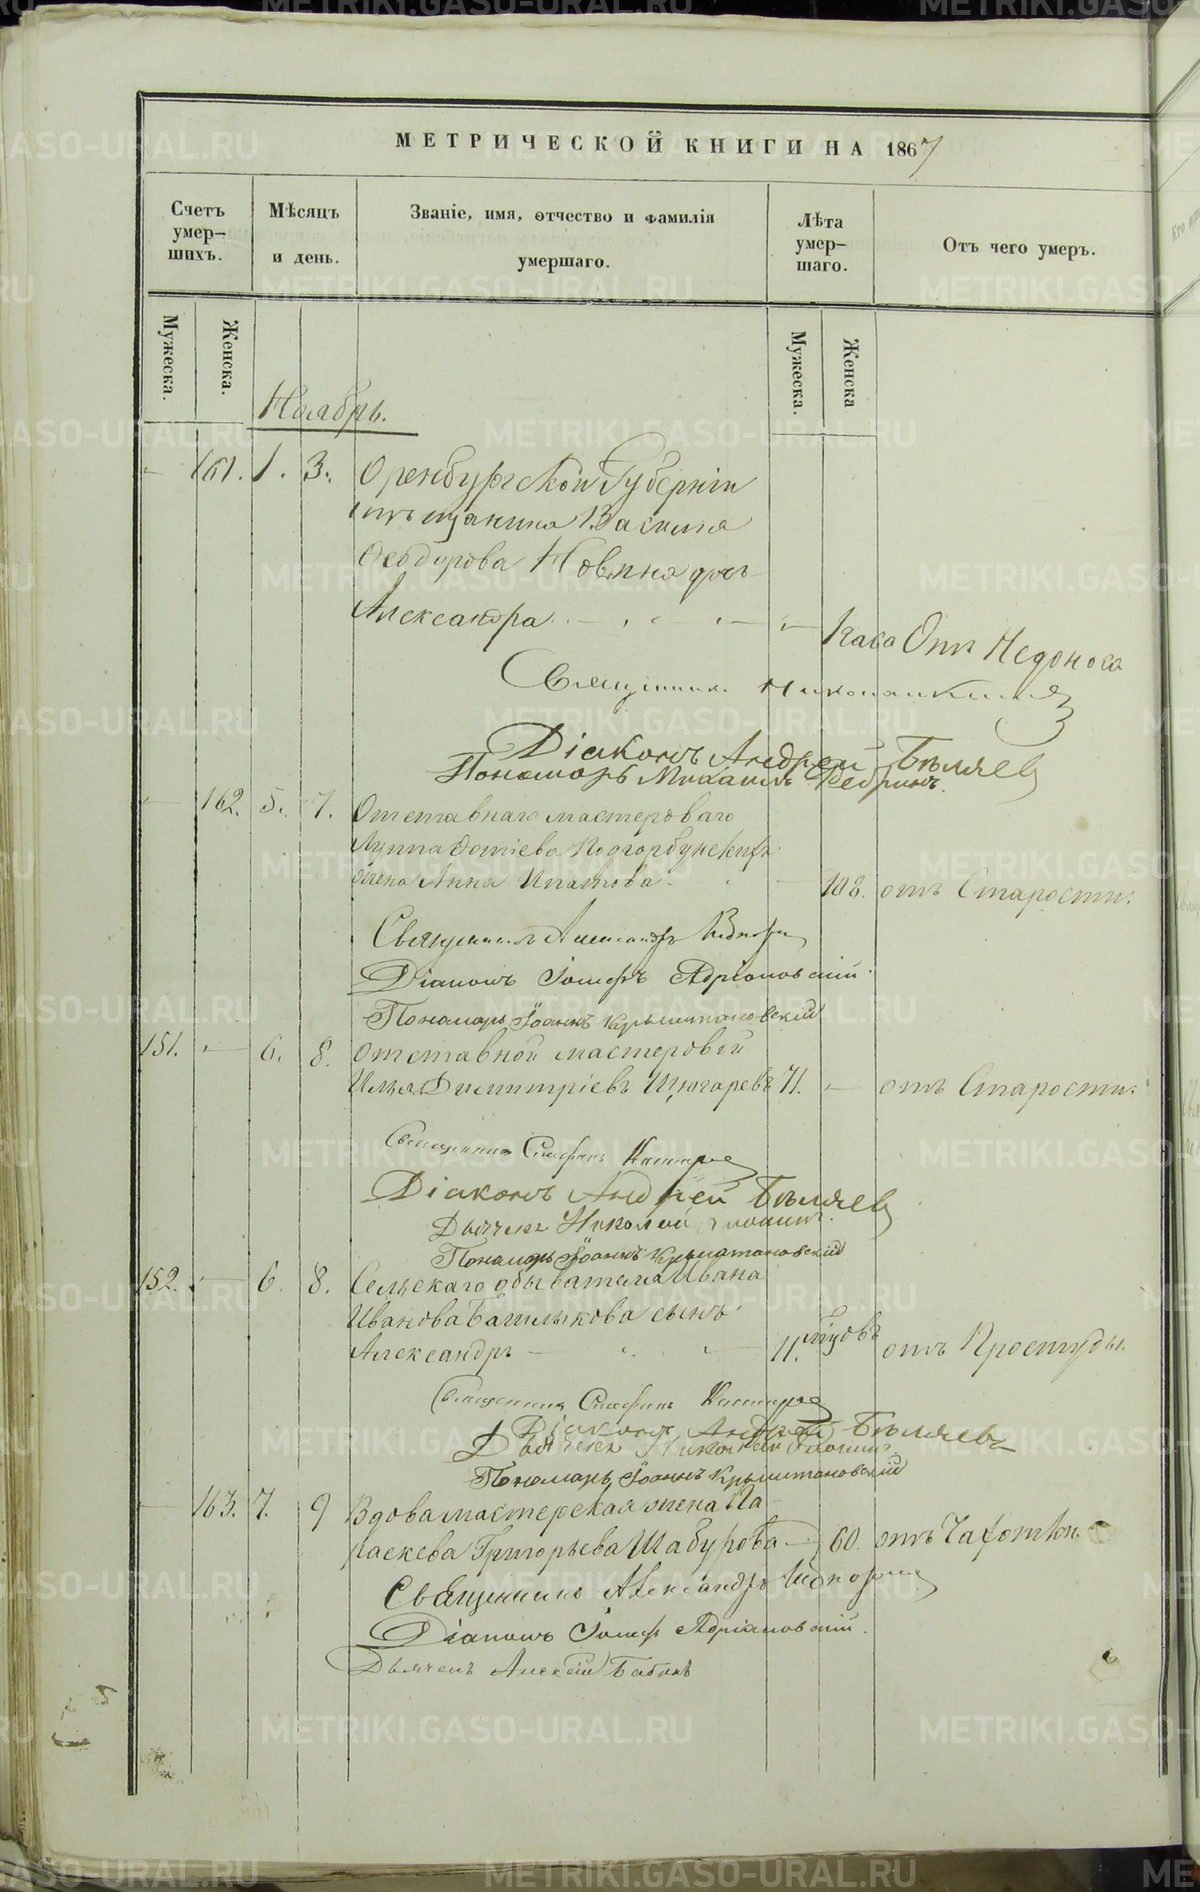 МЕТРИЧЕСКОЙ КНИГИ НА 1867
Счетъ умер-шихъ.
Мѣсяцъ и день.
Званіе, имя, отчество и фамилія умершаго.
Лѣта умер-шаго.
Отъ чего умеръ.
Мужеска.
Женска.
Мужеска.
Женска
Ноябрь.
161. 1. 3. Оренбургской Губерніи
мѣщанина Василія
Ѳеодорова дочь
Александра часа Отъ Недоноса
Священникъ
Діаконъ Андрей Бѣляевъ
Пономарь Михаилъ
162. 5. 7. Отставнаго мастероваго
Луппа Подгорбунскихъ
жена Анна Ипатова 108. отъ Старости.
Священникъ Александръ
Діаконъ Іосифъ Адріановскій.
Пономарь Іоаннъ
151. 6. 8. Отставной мастеровой
Илья Димитріевъ 71. отъ Старости.
Священникъ Стефанъ
Діаконъ Андрей Бѣляевъ
Дьячекъ Николай
Пономарь Іоаннъ
152. 6. 8. Сельскаго обывателя Ивана
Иванова сынъ
Александръ 11. отъ Простуды.
Священникъ Стефанъ
Діаконъ Андрей Бѣляевъ
Дьячекъ Николай
Пономарь Іоаннъ
163. 7. 9 Вдова мастерская жена Па-
раскева Григорьева Шабурова 60. отъ Чахотки.
Священникъ Александръ
Діаконъ Іосифъ Адріановскій.
Дьячекъ Алексій
METRIKI.GASO-URAL.RU